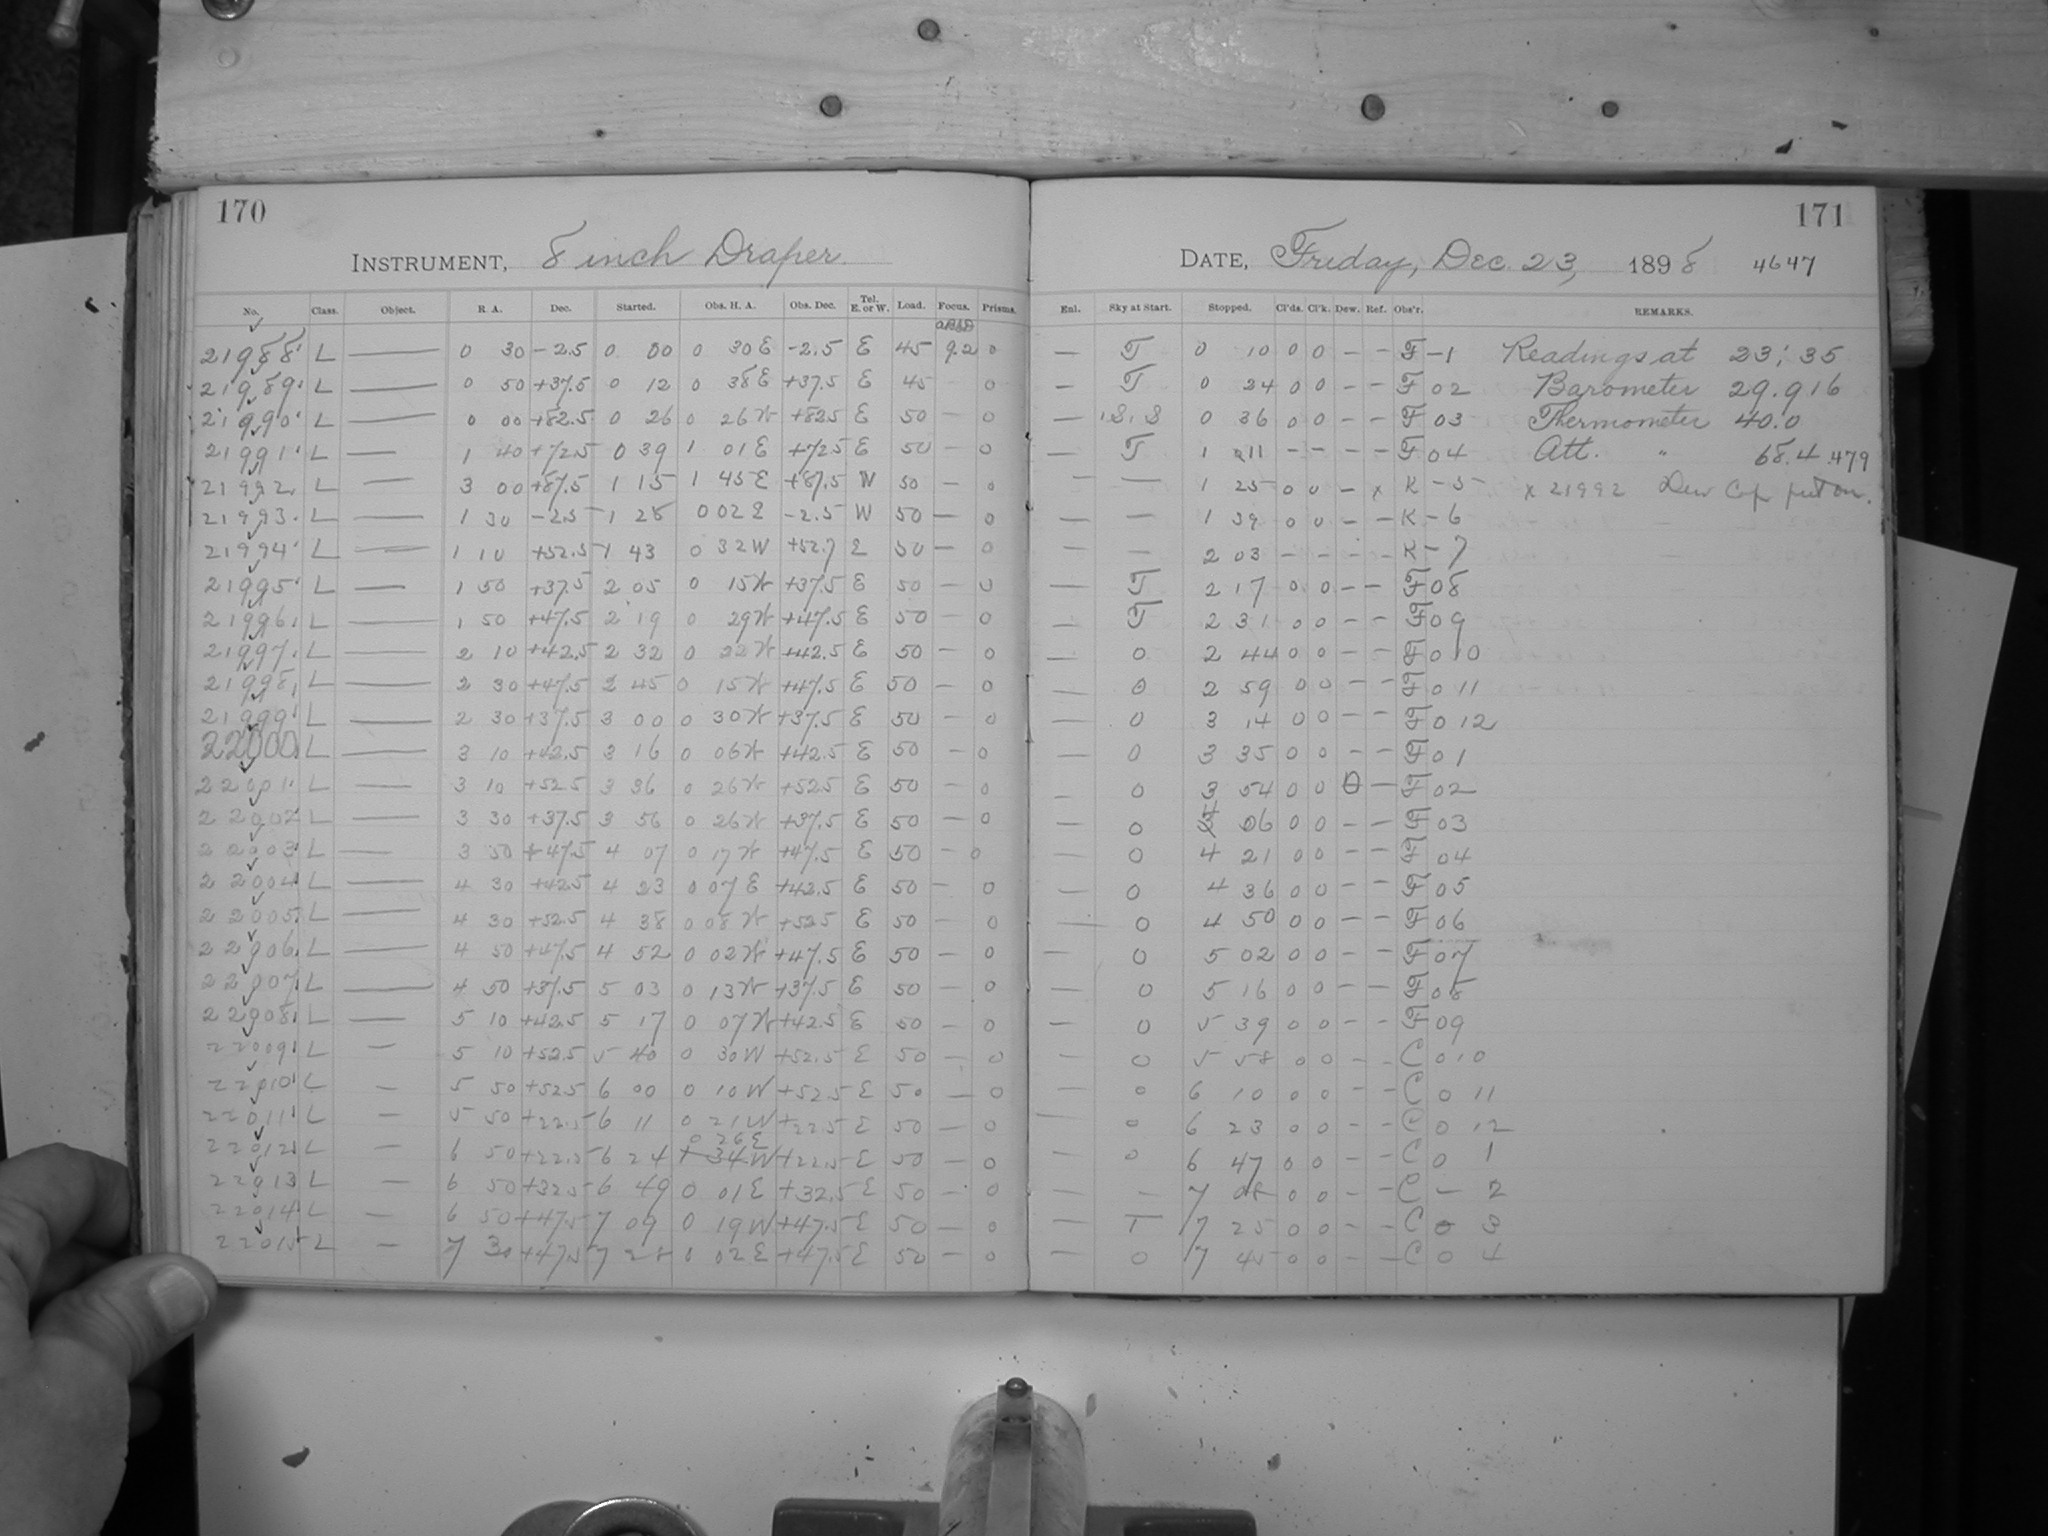 170
INSTRUMENT, 8 inch Draper.
No. Class. Object. R. A. Dec. Started. Obs. H. A. Obs. Dec. Tel. E. or W. Load. Focus. Prisms.
21988 L — 0 30 -2.5 0 00 0 30 E -2.5 E 45 9.2 0
21989 L — 0 50 +37.5 0 12 0 38 E +37.5 E 45 0
21990 L — 0 00 +82.5 0 26 0 26 W +82.5 E 50 – 0
21991 L — 1 40 +72.5 0 39 1 01 E +72.5 E 50 – 0
21992 L — 3 00 +87.5 1 15 1 45 E +87.5 W 50 – 0
21993 L — 1 30 -2.5 1 28 0 02 E -2.5 W 50 – 0
21994 L — 1 10 +52.5 1 43 0 32 W +52.7 E 50 – 0
21995 L — 1 50 +37.5 2 05 0 15 W +37.5 E 50 – 0
21996 L — 1 50 +47.5 2 19 0 29 W +47.5 E 50 – 0
21997 L — 2 10 +42.5 2 32 0 22 W +42.5 E 50 – 0
21998 L — 2 30 +47.5 2 45 0 15 W +47.5 E 50 – 0
21999 L — 2 30 +37.5 3 00 0 30 W +37.5 E 50 – 0
22000 L — 3 10 +42.5 3 16 0 06 W +42.5 E 50 – 0
22001 L — 3 10 +52.5 3 36 0 26 W +52.5 E 50 – 0
22002 L — 3 30 +37.5 3 56 0 26 W +37.5 E 50 – 0
22003 L — 3 50 +47.5 4 07 0 17 W +47.5 E 50 – 0
22004 L — 4 30 +42.5 4 23 0 07 E +42.5 E 50 – 0
22005 L — 4 30 +52.5 4 38 0 08 W +52.5 E 50 – 0
22006 L — 4 50 +47.5 4 52 0 02 W +47.5 E 50 – 0
22007 L — 4 50 +37.5 5 03 0 13 W +37.5 E 50 – 0
22008 L — 5 10 +42.5 5 17 0 07 W +42.5 E 50 – 0
22009 L — 5 10 +52.5 5 40 0 30 W +52.5 E 50 – 0
22010 L — 5 50 +52.5 6 00 0 10 W +52.5 E 50 – 0
22011 L — 5 50 +22.5 6 11 0 21 W +22.5 E 50 – 0
0 26 E
22012 L — 6 50 +22.5 6 24 + 34 W +22.5 E 50 – 0
22013 L — 6 50 +32.5 6 49 0 01 E +32.5 E 50 – 0
22014 L — 6 50 +47.5 7 09 0 19 W +47.5 E 50 – 0
22015 L — 7 30 +47.5 7 28 0 02 E +47.5 E 50 – 0
171
DATE, Friday, Dec. 23, 1898 4647
Enl. Sky at Start. Stopped. Cl'ds. Cl'k. Dew. Ref. Obs'r. REMARKS.
— T 0 10 0 0 – – F – 1 Readings at 23; 35
— T 0 24 0 0 – – F 0 2 Barometer 29.916
— S.S 0 36 0 0 – – F 0 3 Thermometer 40.0
— T 1 11 – – – – F 0 4 Att. " 68.4 .479
— — 1 25 0 0 – x K – 5 x 21992 Dew Cap put on.
— — 1 39 0 0 – – K – 6
— — 2 03 – – – – K – 7
— T 2 17 0 0 – – F 0 8
— T 2 31 0 0 – – F 0 9
— 0 2 44 0 0 – – F 0 10
— 0 2 59 0 0 – – F 0 11
— 0 3 14 0 0 – – F 0 12
— 0 3 35 0 0 – – F 0 1
— 0 3 54 0 0 0 – F 0 2
— 0 4 06 0 0 – – F 0 3
— 0 4 21 0 0 – – F 0 4
— 0 4 36 0 0 – – F 0 5
— 0 4 50 0 0 – – F 0 6
— 0 5 02 0 0 – – F 0 7
— 0 5 16 0 0 – – F 0 8
— 0 5 39 0 0 – – F 0 9
— 0 5 58 0 0 – – C 0 10
— 0 6 10 0 0 – – C 0 11
— 0 6 23 0 0 – – C 0 12
— 0 6 47 0 0 – – C 0 1
— - 7 08 0 0 – – C – 2
— T 7 25 0 0 – – C 0 3
— 0 7 45 0 0 – – C 0 4